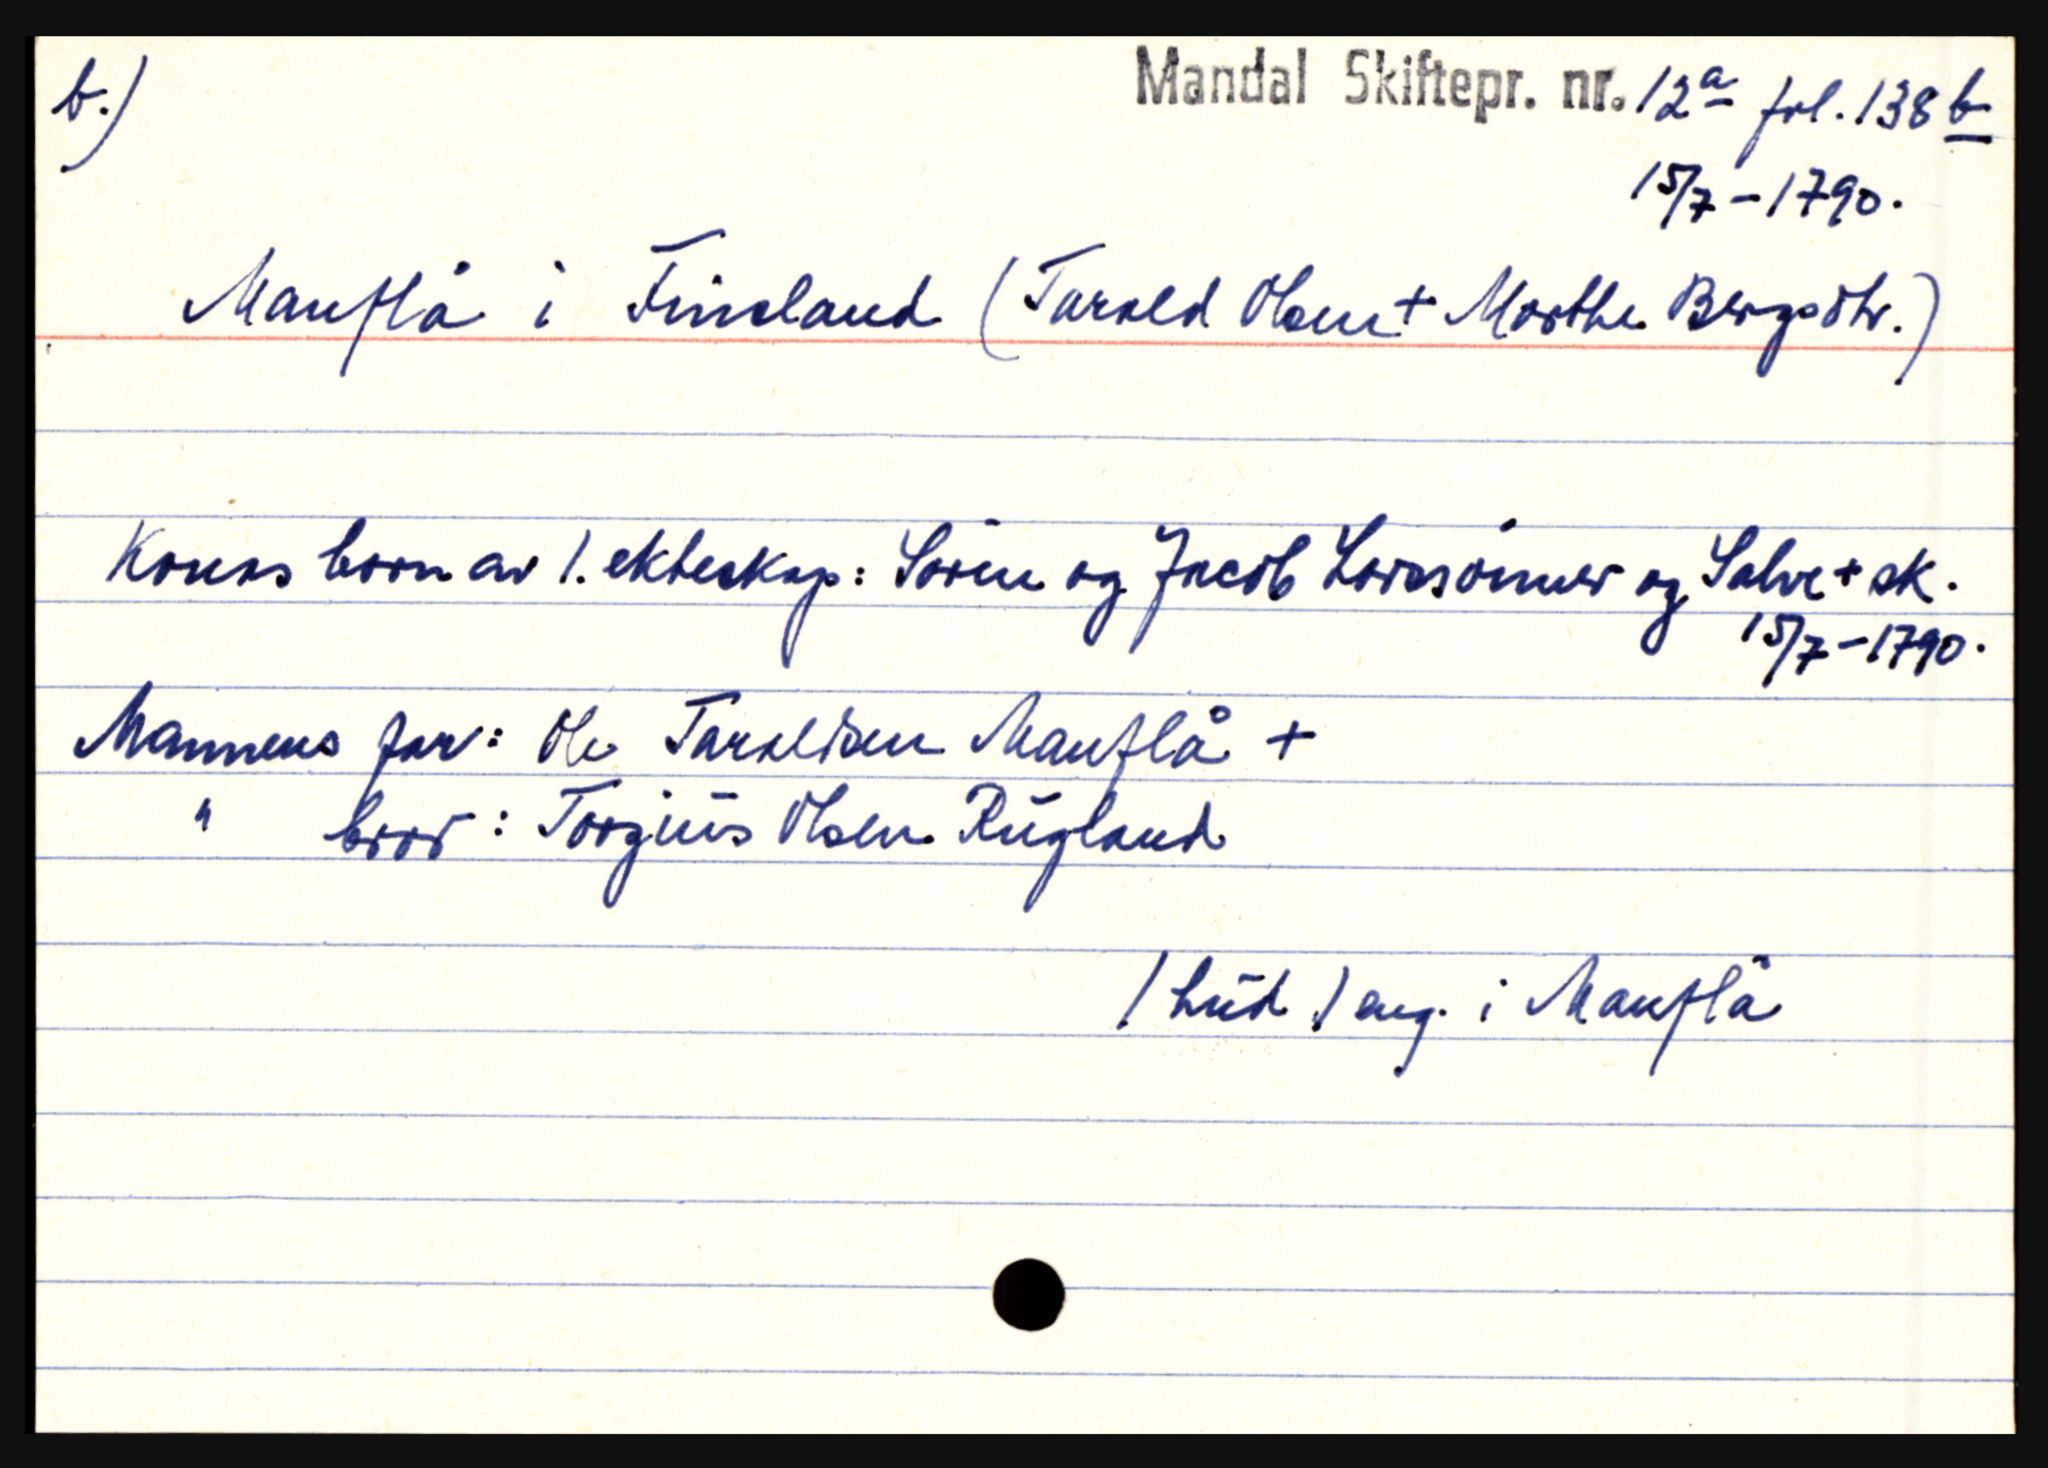 b.) Mandal Skiftepr. nr. 12a fol. 138 b
15/7 - 1790.
Manflå i Finsland (Tarald Olsen + Marthe Bergsdtr.)
Konas born av 1. ekteskap: Søren og Jacob Larssønner og Salve + sk.
15/7 - 1790.
Mannens far: Ole Taraldsen Manflå +
" bror: Torgius Olsen Rugland
1 hud 1 eng. i Manflå